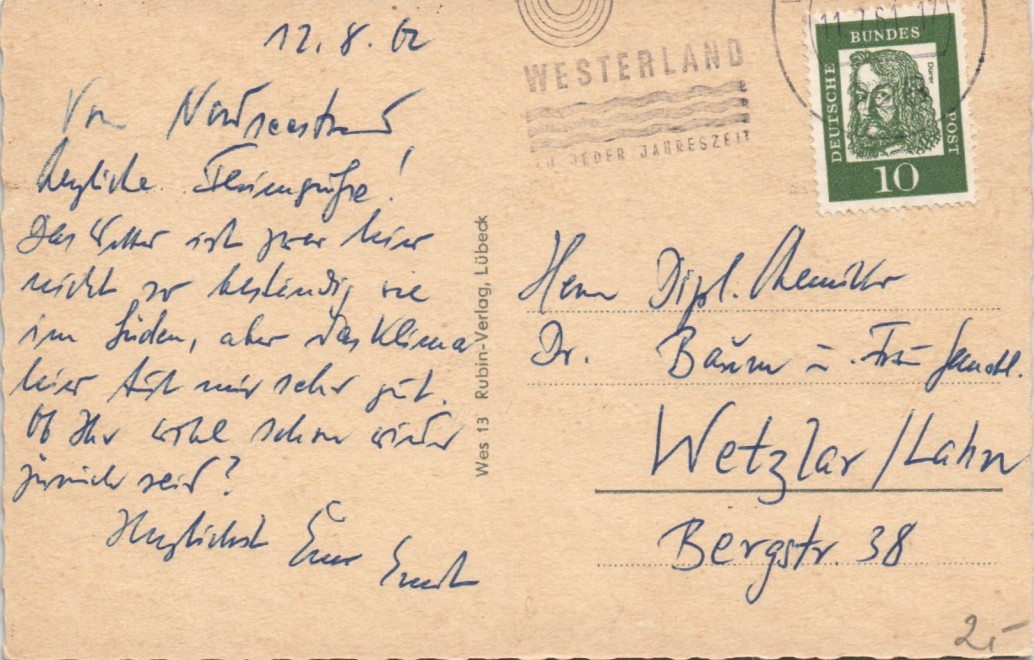 12.8.62
Vom Nordseestrand
herzliche Feriengrüße!
Das Wetter ist zwar hier
nicht so beständig wie
im Süden, aber das Klima
hier tut mir sehr gut.
Ob Ihr wohl schon wieder
zurück seid?
Herzlichst Euer Ernst
Wes 13 Rubin-Verlag, Lübeck
WESTERLAND
ZU JEDER JAHRESZEIT
DEUTSCHE
BUNDES
POST
Dürer
10
Herrn Dipl. Chemiker
Dr. Baum u. Frau Gemahl.
Wetzlar/Lahn
Bergstr. 38
2,-